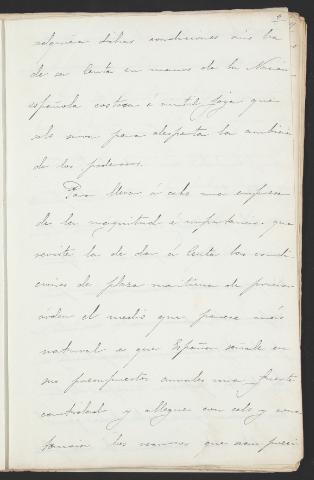 2
adquiera dichas condiciones aún ha
de ser Ceuta en manos de la Nación
española costosa é inutil joya que
solo sirva para despertar la ambición
de los poderosos.
Para llevar á cabo una empresa
de la magnitud é importancia que
reviste la de dar á Ceuta las condi-
ciones de plaza maritima de primer
órden el medio que parece más
natural es que España señale en
sus presupuestos anuales una fuerte
cantidad y allegue con celo y cons-
tancia los recursos que sean preci-